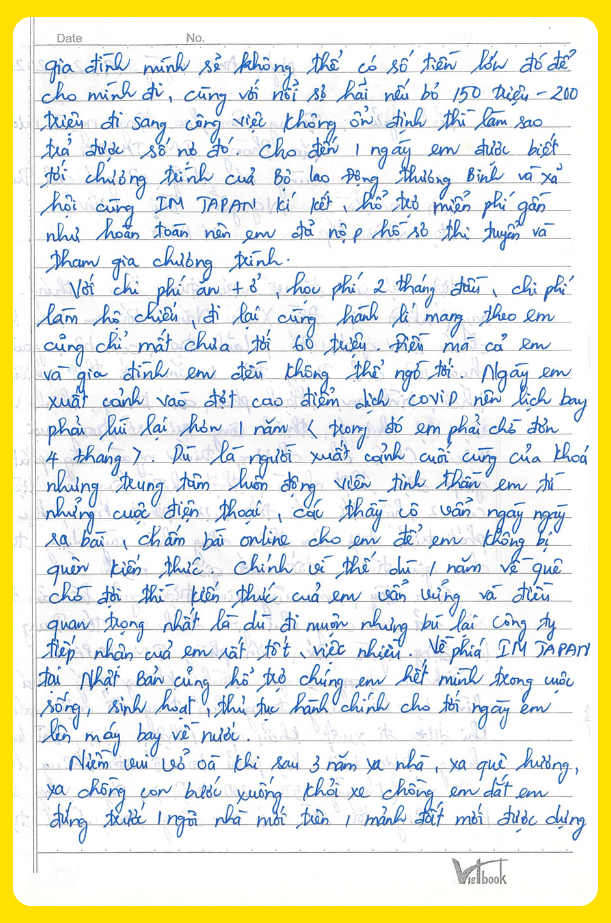 Date No.
gia đình mình sẽ không thể có số tiền lớn đó để
cho mình đi, cùng với nỗi sợ hãi nếu bỏ 150 triệu - 200
triệu đi sang công việc không ổn định thì làm sao
trả được số nợ đó. Cho đến 1 ngày em được biết
tới chương trình của Bộ lao động thương Binh và xã
hội cùng IM JAPAN kí kết, hỗ trợ miễn phí gần
như hoàn toàn nên em đã nộp hồ sơ thi tuyển và
tham gia chương trình.
Với chi phí ăn + ở, học phí 2 tháng đầu, chi phí
làm hộ chiếu, đi lại cùng hành lí mang theo em
cũng chỉ mất chưa tới 60 triệu. Điều mà cả em
và gia đình em đều không thể ngờ tới. Ngày em
xuất cảnh vào đợt cao điểm dịch COVID nên lịch bay
phải lùi lại hơn 1 năm ( trong đó em phải chờ đơn
4 tháng ) Dù là người xuất cảnh cuối cùng của khoá
nhưng trung tâm luôn động viên tinh thần em từ
những cuộc điện thoại, các thầy cô vẫn ngày ngày
ra bài, chấm bài online cho em để em không bị
quên kiến thức. Chính vì thế dù 1 năm về quê
chờ đợi thì kiến thức của em vẫn vững và điều
quan trọng nhất là dù đi muộn nhưng bù lại công ty
tiếp nhận của em rất tốt, việc nhiều. Về phía IM JAPAN
tại Nhật Bản cũng hỗ trợ chúng em hết mình trong cuộc
sống, sinh hoạt, thủ tục hành chính cho tới ngày em
lên máy bay về nước.
Niềm vui vỡ oà khi sau 3 năm xa nhà, xa quê hương,
xa chồng con bước xuống khỏi xe chồng em dắt em
đứng trước 1 ngôi nhà mới trên 1 mảnh đất mới được dựng
Vietbook